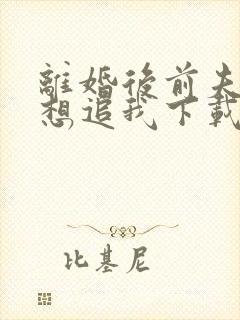 離婚後前夫
想追我下載
比基尼